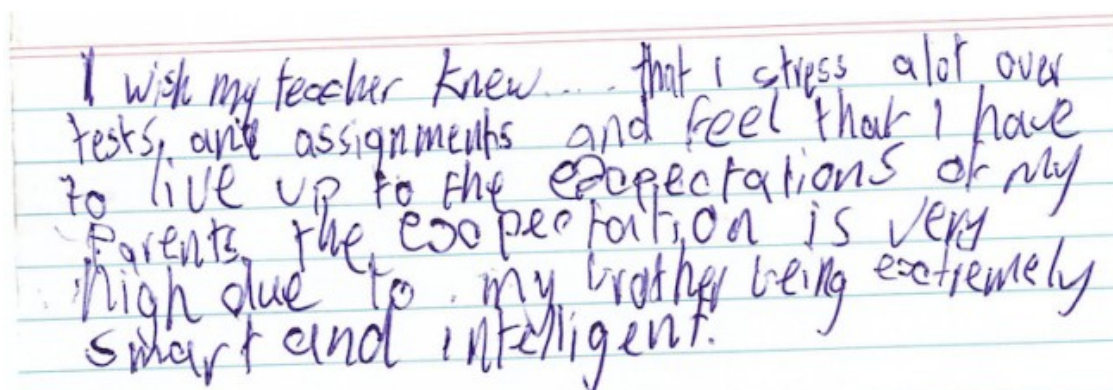 I wish my teacher knew.... that I stress alot over
tests, and assignments and feel that I have
to live up to the expectations of my
Parents, the expectation is very
high due to my brother being extremely
smart and intelligent.